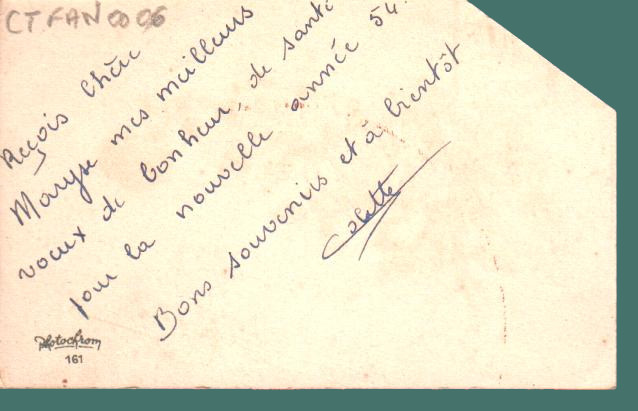 CTFAN0006
Reçois Chère
Maryse mes meilleurs
voeux de bonheur, de santé
pour la nouvelle année 54
Bons souvenirs et à bientôt
Colette
Photochrom
161